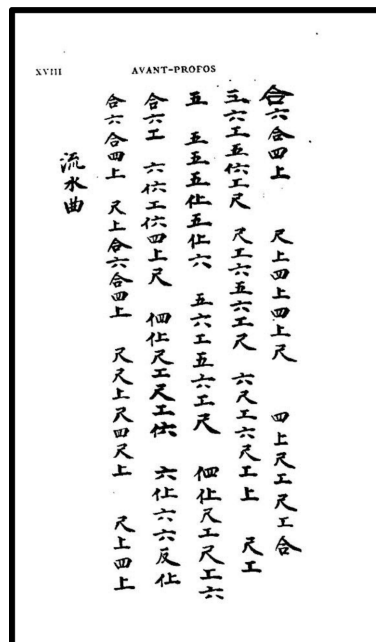 XVIII AVANT-PROFOS
合六合四上 尺上四上四上尺 四上尺工尺工合
三六工五㐲工尺 尺工六五六工尺 六尺工六尺工上 尺工
五 五五五仩五仩六 五六工五六工尺 伵仩尺工尺工六
合六工 六㐲工㐲四上尺 伵仩尺工尺工㐲 六仩六六反仩
合六合四上 尺上合六合四上 尺尺上尺四尺上 尺上四上
流水曲